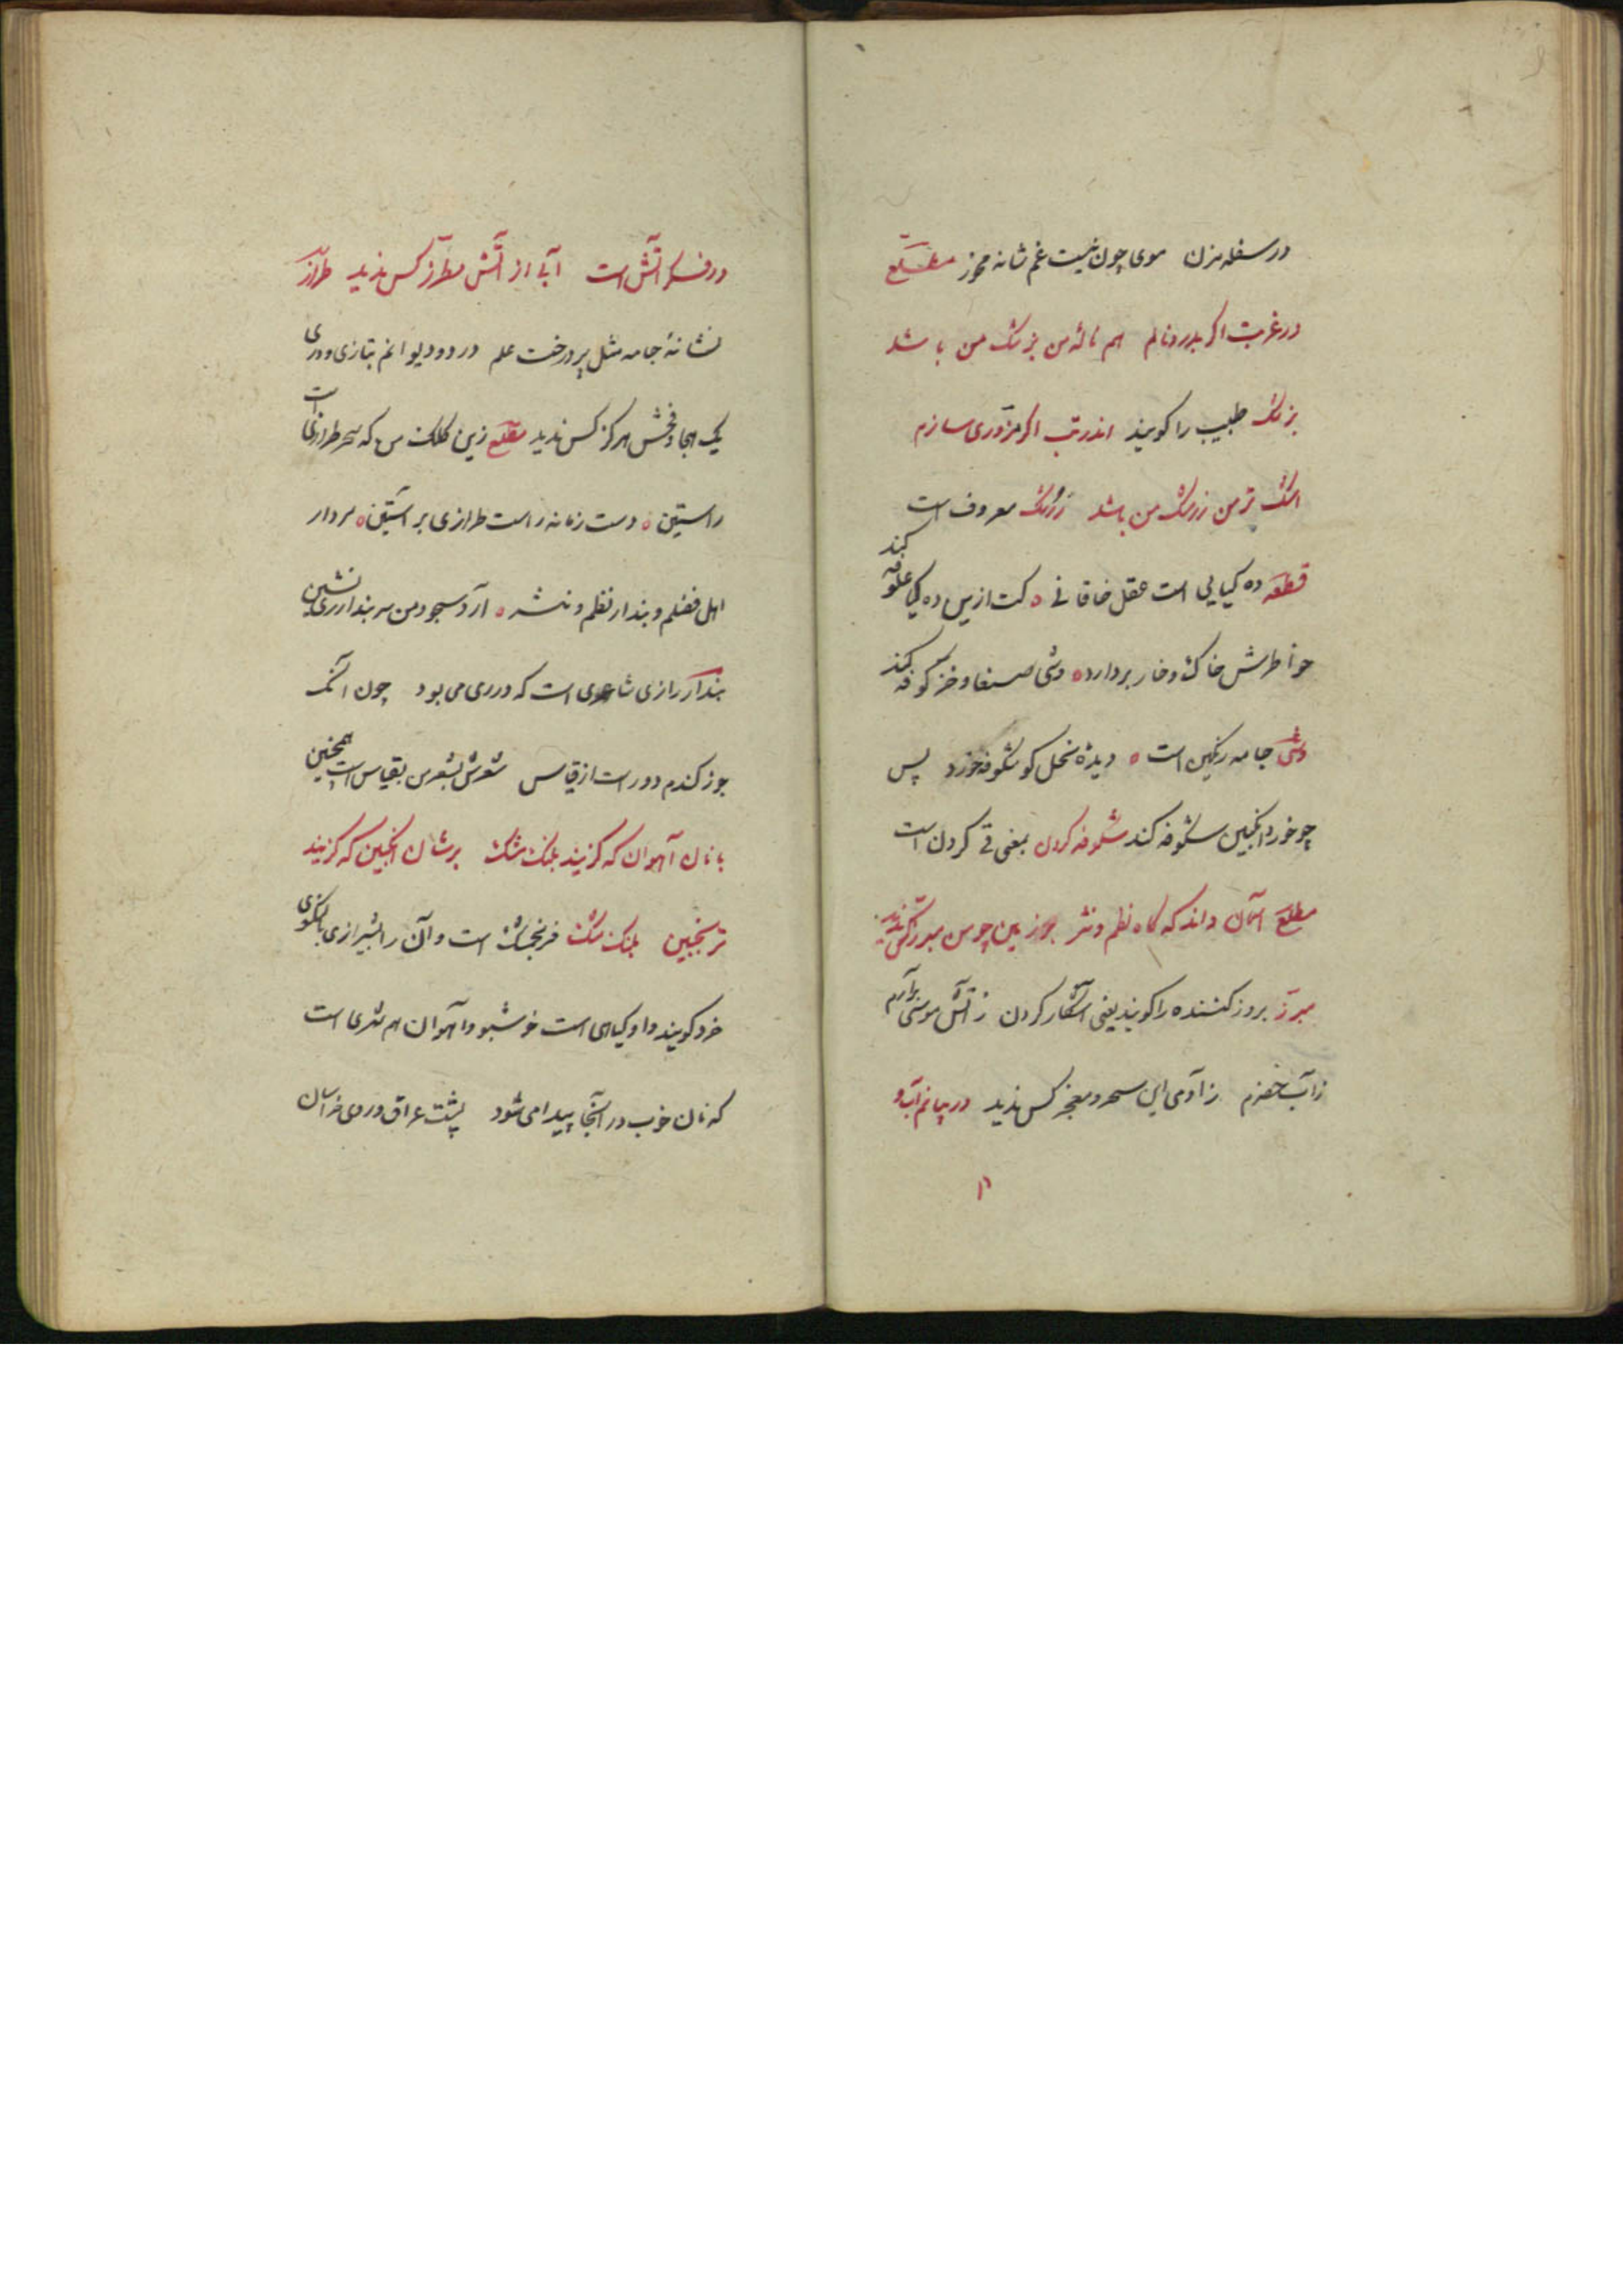 در سفله مزن موی چون نیست غم شانه مخور مطلع
در غربت اگر بدرد نالم هم نالهٔ من بزشک من باشد
بزشک طبیب را گویند اندر تب اگر مزوری سازم
اشک تر من زرشک من باشد زرشک معروف است
قطعه ده کیایی است عقل خاقانی کت ازین ده کیا علوفه کند
خاطرش خاک و خار بردارد وشی صنعا و خز کوفه کند
وشی جامه رنگین است دیدهٔ نحل کو شکوفه خورد پس
چو خورد انگبین شکوفه کند شکوفه کردن بمعنی قی کردن است
مطلع آسمان داند که گاه نظم و نثر بر زمین چو من مبرز کس ندید
مبرز بروز کننده را گویند یعنی آشکار کردن ز آتش موسی برآرم
ز آب خضرم ز آدمی این سحر و معجز کس ندید در بیانم آب و
در فکر آتش است آبی از آتش مطرز کس ندید طراز
نشانهٔ جامه مثل پر درخت علم در دو دیوانم بتازی و دری
یک هجا و فحش هرگز کس ندید مطلع زین کلک من که سحر طرازی است
راستین دست زمانه راست طرازی بر آستین سردار
اهل فضلم و بندار نظم و نثر آرد سجود من سر بندار ری نشین
بندار رازی شاعری است که در ری می بود چون آنک
جو ز گندم دور است از قیاس شعرش بشعر من بقیاس است همچنین
با نان آهوان که گزیند پلنگ مشک بر شان انگبین که گزیند
ترنجبین پلنگ مشک فرنجمشک است و آن را بشیرازی بالنگوی
خرد گویند و او گیاهی است خوشبو و آهوان هم شهری است
که نان خوب در آنجا پیدا می شود پشت عراق و روی خراسان